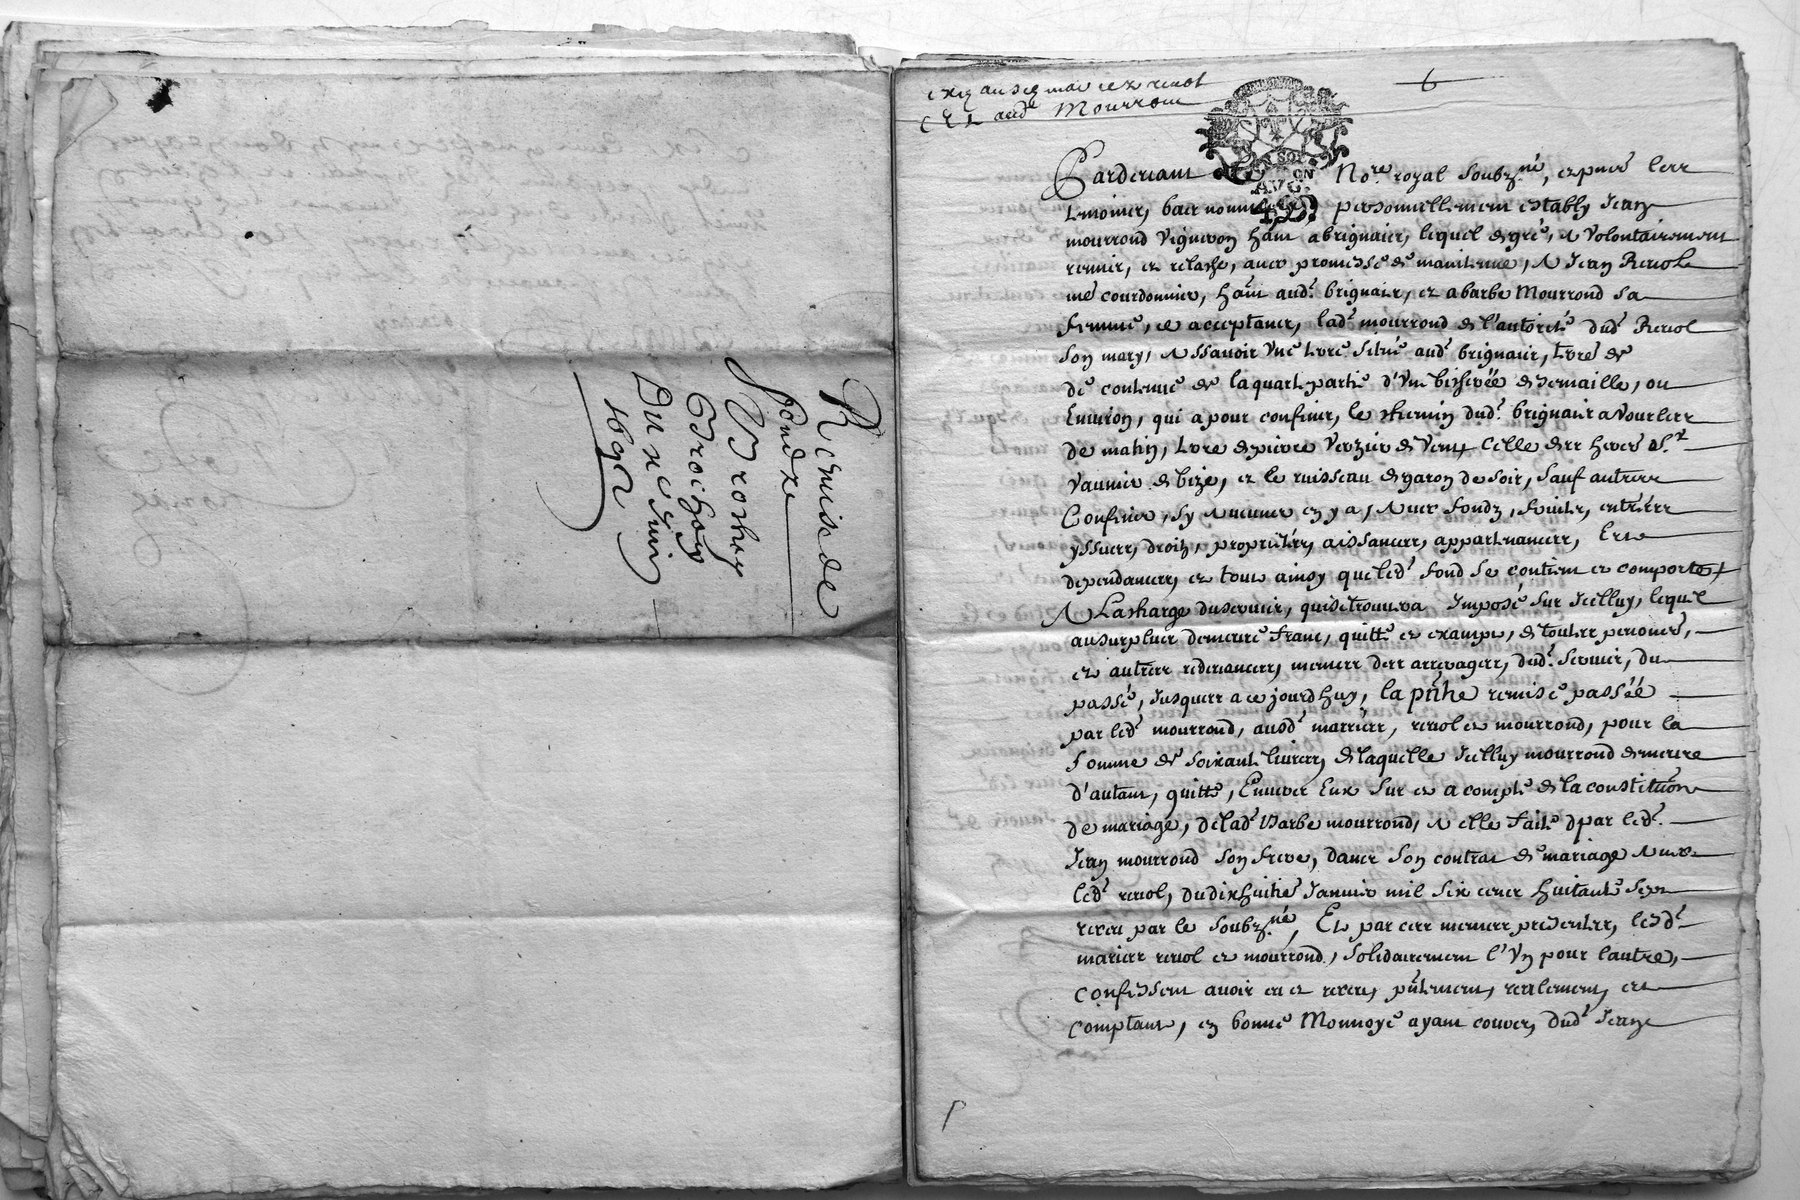 Remise de
fondz
Brochay
Broichoy
Du xe Juin
1692
6
audt Mourron
SOL
LYON
Pardevant le Nore royal soubzne, et pnts les
tmoins, bas nommes personnellement estably Jean
mourrond vigneron hant a brignais, lequel de gré, & volontairement
remis, et relasche, avec promesse de maintenue, A Jean Reriol
me courdonnier, hant audt brignais, et a barbe Mourrond sa
femme, ce acceptants, ladt mourrond de l'autorité dudt Reriol
son mary, Assavoir une terre située audt brignais, terre de
de contenue de la quart partie d'une bicherée de semaille, ou
Environ, qui a pour confins, le chemin dudt brignais a Vourles
de matin, terre de pierre Verzier de vent, Celle des hers de Sr
Vaunier de bize, et le ruisseau de garon de soir, sauf autres
Confins, sy aucuns en y a, Avec fondz, fruits, entrées
yssues, droits, proprietés, aissances, appartenances, Et
dependances, et tout ainsy que ledt fond se contient et comporte,
A La charge du servis, qui se trouvera Imposé sur Icelluy, lequel
au surplus demeure franc, quitte et exampt, de toutes pensions,
et autres redevances, mesmes des arrerages, dudt servis, du
passé, Jusques a ce jourdhuy, la pnte remise passéé
par ledt mourrond, ausdt mariés, reriol et mourrond, pour la
somme de soixante livres, de laquelle Icelluy mourrond demeure
d'autant, quitte, Envers Eux sur et a compte de la constitution
de mariage, de ladt Barbe mourrond, A elle faite par ledt
Jean mourrond son frere, dans son contrat de mariage Avec
ledt reriol, du dixhuitie Janvier mil six cens huitante sept
receu par le soubzné, Et par ces mesmes presentes, lesdt
mariés reriol et mourrond, solidairement l'un pour l'autre,
Confessent avoir eu et receu, pntement, reallement, et
Comptant, en bonne Monnoye ayant couvers, dudt Jean